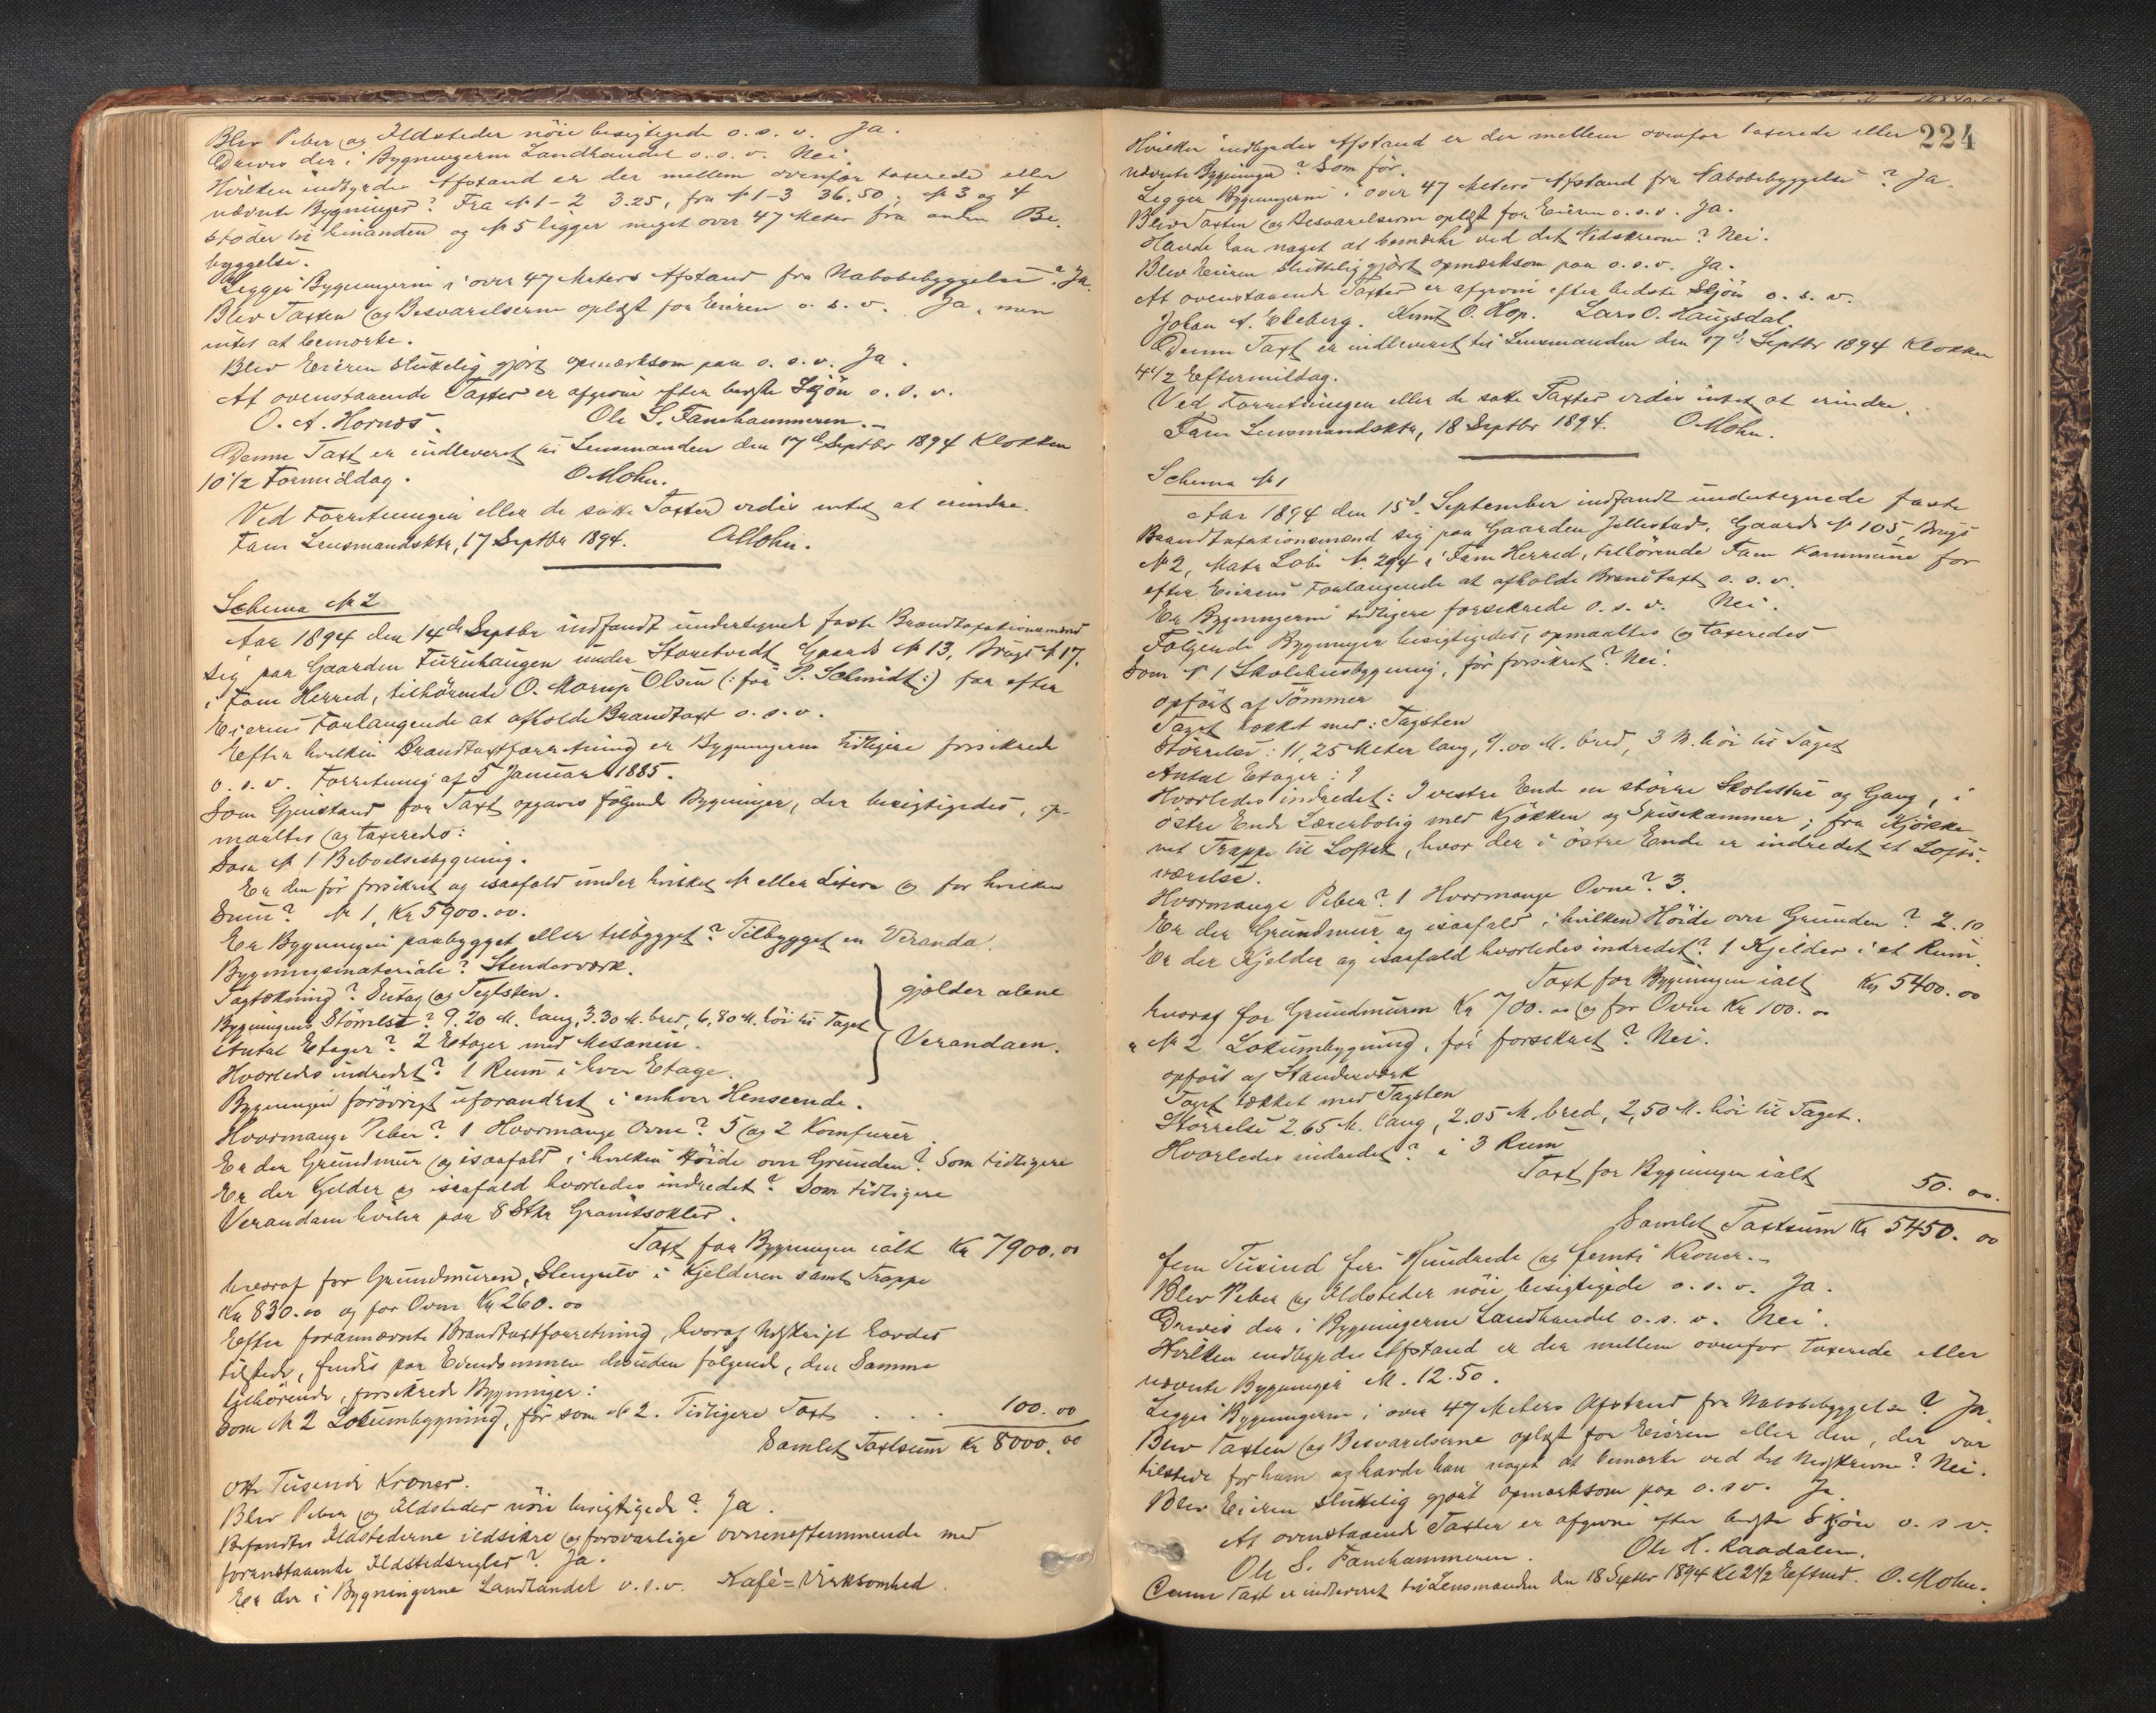 Blev Piber og Ildsteder nöie besigtigede o. s. v. Ja.
Drives der i Bygningerne Landhandel o. s. v. Nei.
Hvilken indbyrdes Afstand er der mellem ovenfor taxerede eller
nævnte Bygninger? Fra № 1-2 3.25, fra № 1-3 36.50, № 3 og 4
stöder til hinanden og № 5 ligger meget over 47 Meter fra anden Be-
byggelse.
Ligger Bygningerne i over 47 Meters Afstand fra Nabobebyggelse? Ja.
Blev Taxten og Besvarelserne oplæst for Eieren o. s. v. Ja, men
intet at bemærke.
Blev Eieren skriftelig gjort opmærksom paa o. s. v. Ja.
At ovenstaaende Taxter er afgivne efter bedste Skjön o. s. v.
O. A. Hornæs. Ole S. Fanehammeren.
Denne Taxt er indleveret til Lensmanden den 17de Septbr 1894 Klokken
10 1/2 Formiddag. O Mohn.
Ved Forretningen eller de satte Taxter vides intet at erindre.
Fane Lensmandsktr, 17 Septbr 1894. O Mohn.
Schema № 2
Aar 1894 den 14de Septbr indfandt undertegned faste Brandtaxationsmænd
sig paa Gaarden Furuhaugen under Storetvedt Gaards № 13, Brugs № 17.
i Fane Herred, tilhörende O. Marup Olsen (: för P. Schmidt :) for efter
Eierens Forlangende at afholde Brandtaxt o. s. v.
Efter hvilken Brandtaxtforretning er Bygningerne tidligere forsikrede
o. s. v. Forretning af 5 Januar 1885.
Som Gjenstand for Taxt opgaves fölgende Bygninger, der besigtigedes, op-
maaltes og taxeredes:
Som № 1 Beboelsesbygning.
Er den för forsikret og isaafald under hvilket № eller Litera og for hvilken
Sum? № 1, Kr 5900.00.
Er Bygningen paabygget eller tilbygget? Tilbygget en Veranda.
Bygningsmateriale? Stenderværk.
Tagtækning? Sutag og Teglsten.
Bygningens Störrelse? 9.20 M. lang, 3.30 M. bred, 6,80 M. höi til Taget
Antal Etager? 2 Etager med Mesanin.
Hvorledes indredet? 1 Rum i hver Etage.
gjælder alene
Verandaen.
Bygningen forövrigt uforandret i enhver Henseende.
Hvormange Piber? 1 Hvormange Ovne? 5 og 2 Komfurer
Er der Grundmur og isaafald i hvilken Höide over Grunden? Som tidligere
Er der Kjelder og isaafald hvorledes indredet? Som tidligere
Verandaen hviler paa 8 Stkr Granitsokler.
Taxt for Bygningen ialt Kr 7900.00
hvoraf for Grundmuren, Stengulv i Kjelderen samt Trappe
Kr 830.00 og for Ovne Kr 260.00
Efter forannævnte Brandtaxtforretning, hvoraf Udskrift havdes
tilstede, findes paa Eiendommen desuden fölgende, den Samme
tilhörende, forsikrede Bygninger:
Som № 2 Lokumbygning, för som № 2. Tidligere Taxt . . . 100.00
Samlet Taxtsum Kr 8000.00
otte Tusinde Kroner.
Blev Piber og Ildsteder nöie besigtigede? Ja.
Befandtes Ildstederne ildsikre og forsvarlige overensstemmende med
foranstaaende Ildstedsregler? Ja.
Er der i Bygningerne Landhandel o. s. v. Kafé=Virksomhed.
224
Hvilken indbyrdes Afstand er der mellem ovenfor taxerede eller
nævnte Bygninger? Som för.
Ligger Bygningerne i over 47 Meters Afstand fra Nabobebyggelse? Ja.
Blev Taxten og Besvarelserne oplæst for Eieren o. s. v. Ja.
Havde han noget at bemærke ved det Nedskrevne? Nei.
Blev Eieren skriftelig gjort opmærksom paa o. s. v. Ja.
At ovenstaaende Taxter er afgivne efter bedste Skjön o. s. v.
Johan A. Ekeberg. Knut O. Hop. Lars O. Haugsdal.
Denne Taxt er indleveret til Lensmanden den 17de Septbr 1894 Klokken
4 1/2 Eftermiddag.
Ved Forretningen eller de satte Taxter vides intet at erindre.
Fane Lensmandsktr, 18 Septbr 1894. O Mohn.
Schema № 1
Aar 1894 den 15de September indfandt undertegnede faste
Brandtaxationsmænd sig paa Gaarden Jellestad, Gaards № 105, Brugs
№ 2, Matr Löbe № 294 i Fane Herred, tilhörende Fane Kommune for
efter Eierens Forlangende at afholde Brandtaxt o. s. v.
Er Bygningerne tidligere forsikrede o. s. v. Nei.
Fölgende Bygninger besigtigedes, opmaaltes og taxeredes
Som № 1 Skolehusbygning, för forsikret? Nei.
opfört af Tömmer
Taget tækket med: Tagsten
Störrelse: 11,25 Meter lang, 9.00 M. bred, 3 M. höi til Taget
Antal Etager: 1
Hvorledes indredet: I vestre Ende en större Skolestue og Gang, i
östre Ende Lærerbolig med Kjökken og Spisekammer; fra Kjökke-
net Trappe til Loftet, hvor der i östre Ende er indredet et Lofts-
værelse.
Hvormange Piber? 1 Hvormange Ovne? 3.
Er der Grundmur og isaafald i hvilken Höide over Grunden? 2.10
Er der Kjelder og isaafald hvorledes indredet? 1 Kjelder i et Rum.
Taxt for Bygningen ialt Kr 5400.00
hvoraf for Grundmuren Kr 700.00 og for Ovne Kr 100.00
" № 2 Lokumbygning, för forsikret? Nei.
opfört af Standerværk
Taget tækket med Tagsten
Störrelse 2,65 M. lang, 2.05 M. bred, 2,50 M. höi til Taget.
Hvorledes indredet? i 3 Rum
Taxt for Bygningen ialt 50.00.
Samlet Taxtsum Kr 5450.00
fem Tusind fire Hundrede og femti Kroner.
Blev Piber og Ildsteder nöie besigtigede o. s. v. Ja.
Drives der i Bygningerne Landhandel o. s. v. Nei.
Hvilken indbyrdes Afstand er der mellem ovenfor taxerede eller
nævnte Bygninger M. 12.50.
Ligger Bygningerne i over 47 Meters Afstand fra Nabobebyggelse? Ja.
Blev Taxten og Besvarelserne oplæst for Eieren eller den, der var
tilstede for ham og havde han noget at bemærke ved det Nedskrevne? Nei.
Blev Eieren skriftelig gjort opmærksom paa o. s v. Ja.
At ovenstaaende Taxter er afgivne efter bedste Skjön o. s v.
Ole S. Fanehammeren. Ole K. Raadalen.
Denne Taxt er indleveret til Lensmanden den 18 Septbr 1894 Kl 2 1/2 Eftmd. O. Mohn.